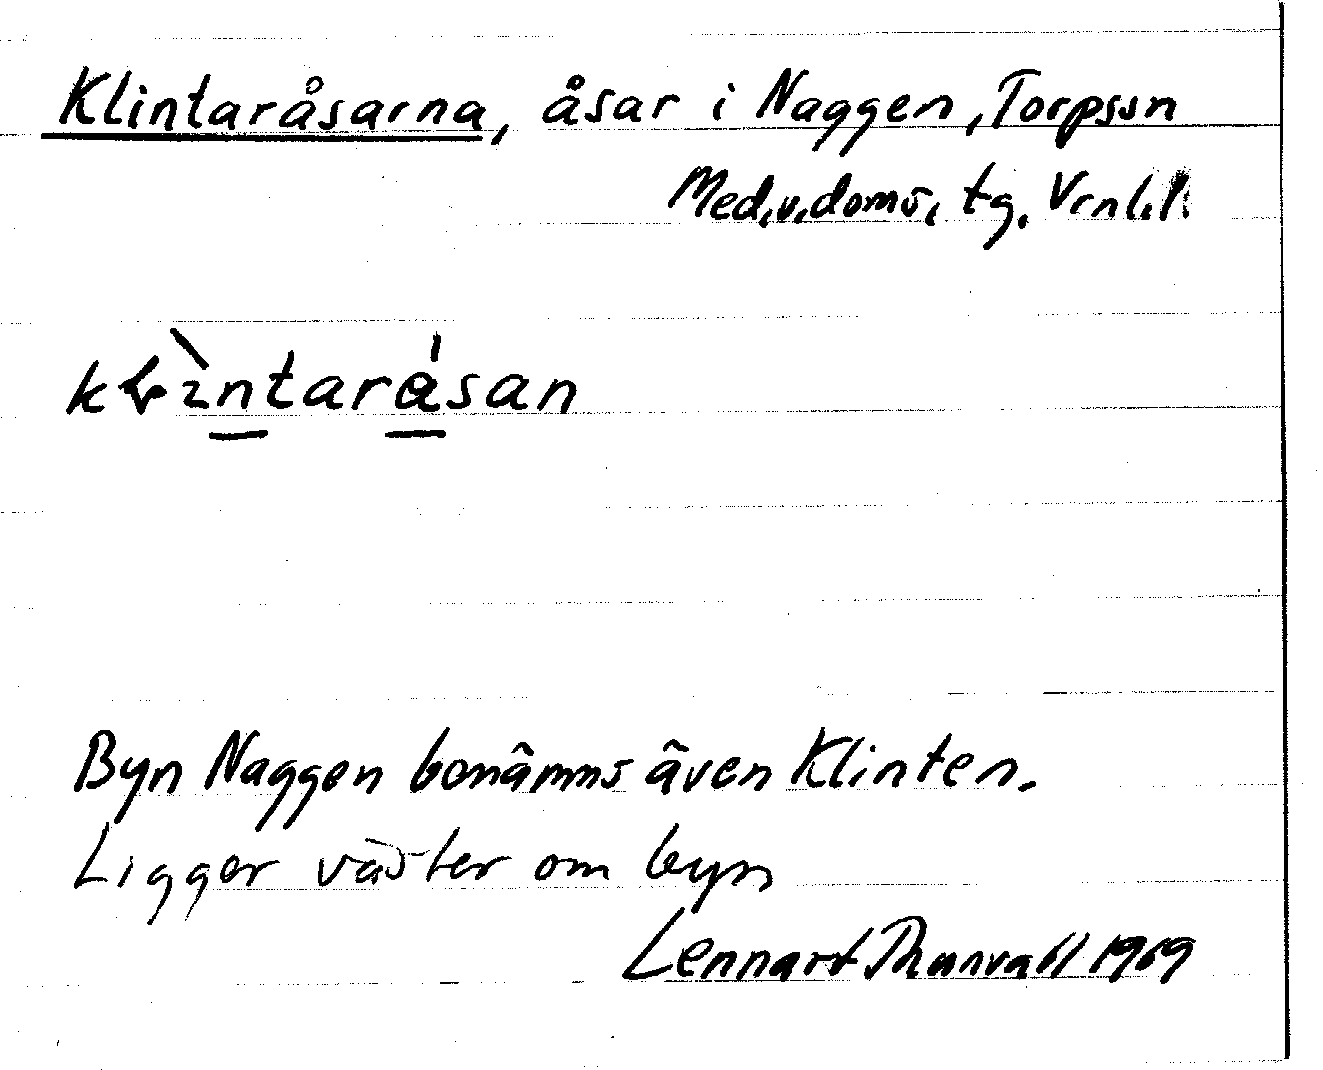 Klintaråsarna, åsar i Naggen, Torpssn
Med.v.doms. tg. Vrnl.l.
Byn Naggen benämns även Klinten.
Ligger väster om byn
Lennart Thunvall 1969